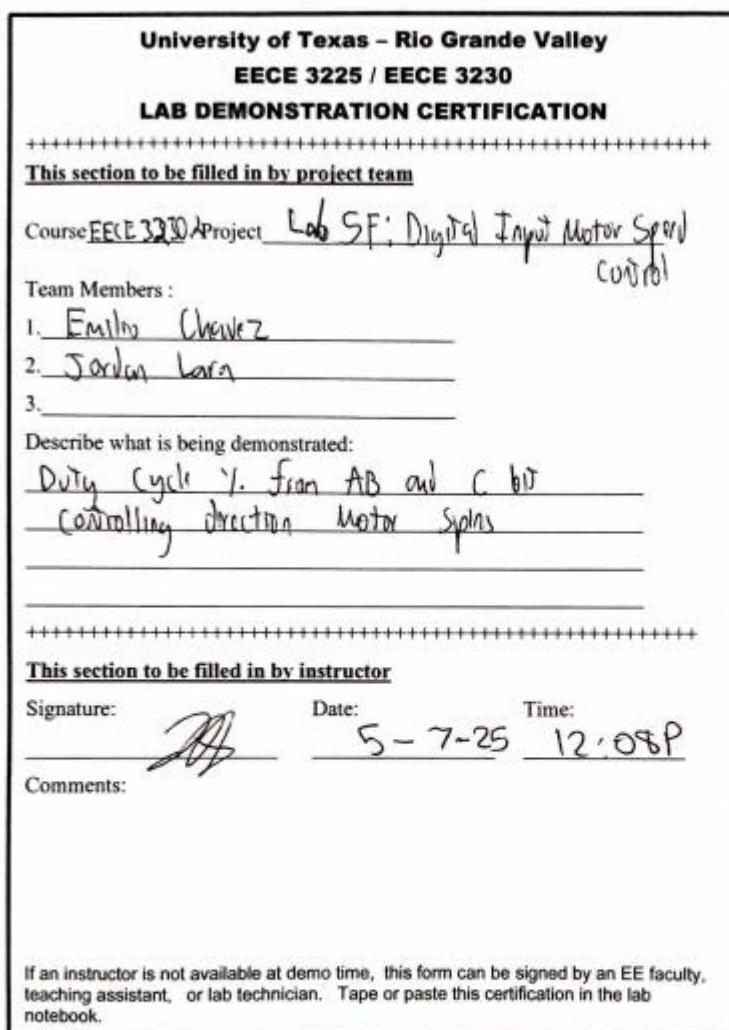 University of Texas – Rio Grande Valley
EECE 3225 / EECE 3230
LAB DEMONSTRATION CERTIFICATION
+++++++++++++++++++++++++++++++++++++++++++++++++++++++++
This section to be filled in by project team
Course EECE 3230 Project Lab 5F: Digital Input Motor Speed
Control
Team Members :
1. Emilio Chavez
2. Jordan Lara
3.
Describe what is being demonstrated:
Duty Cycle % from AB and C bit
Controlling direction Motor Spins
+++++++++++++++++++++++++++++++++++++++++++++++++++++++++
This section to be filled in by instructor
Signature: Date: Time:
5-7-25 12:08P
Comments:
If an instructor is not available at demo time, this form can be signed by an EE faculty,
teaching assistant, or lab technician. Tape or paste this certification in the lab
notebook.